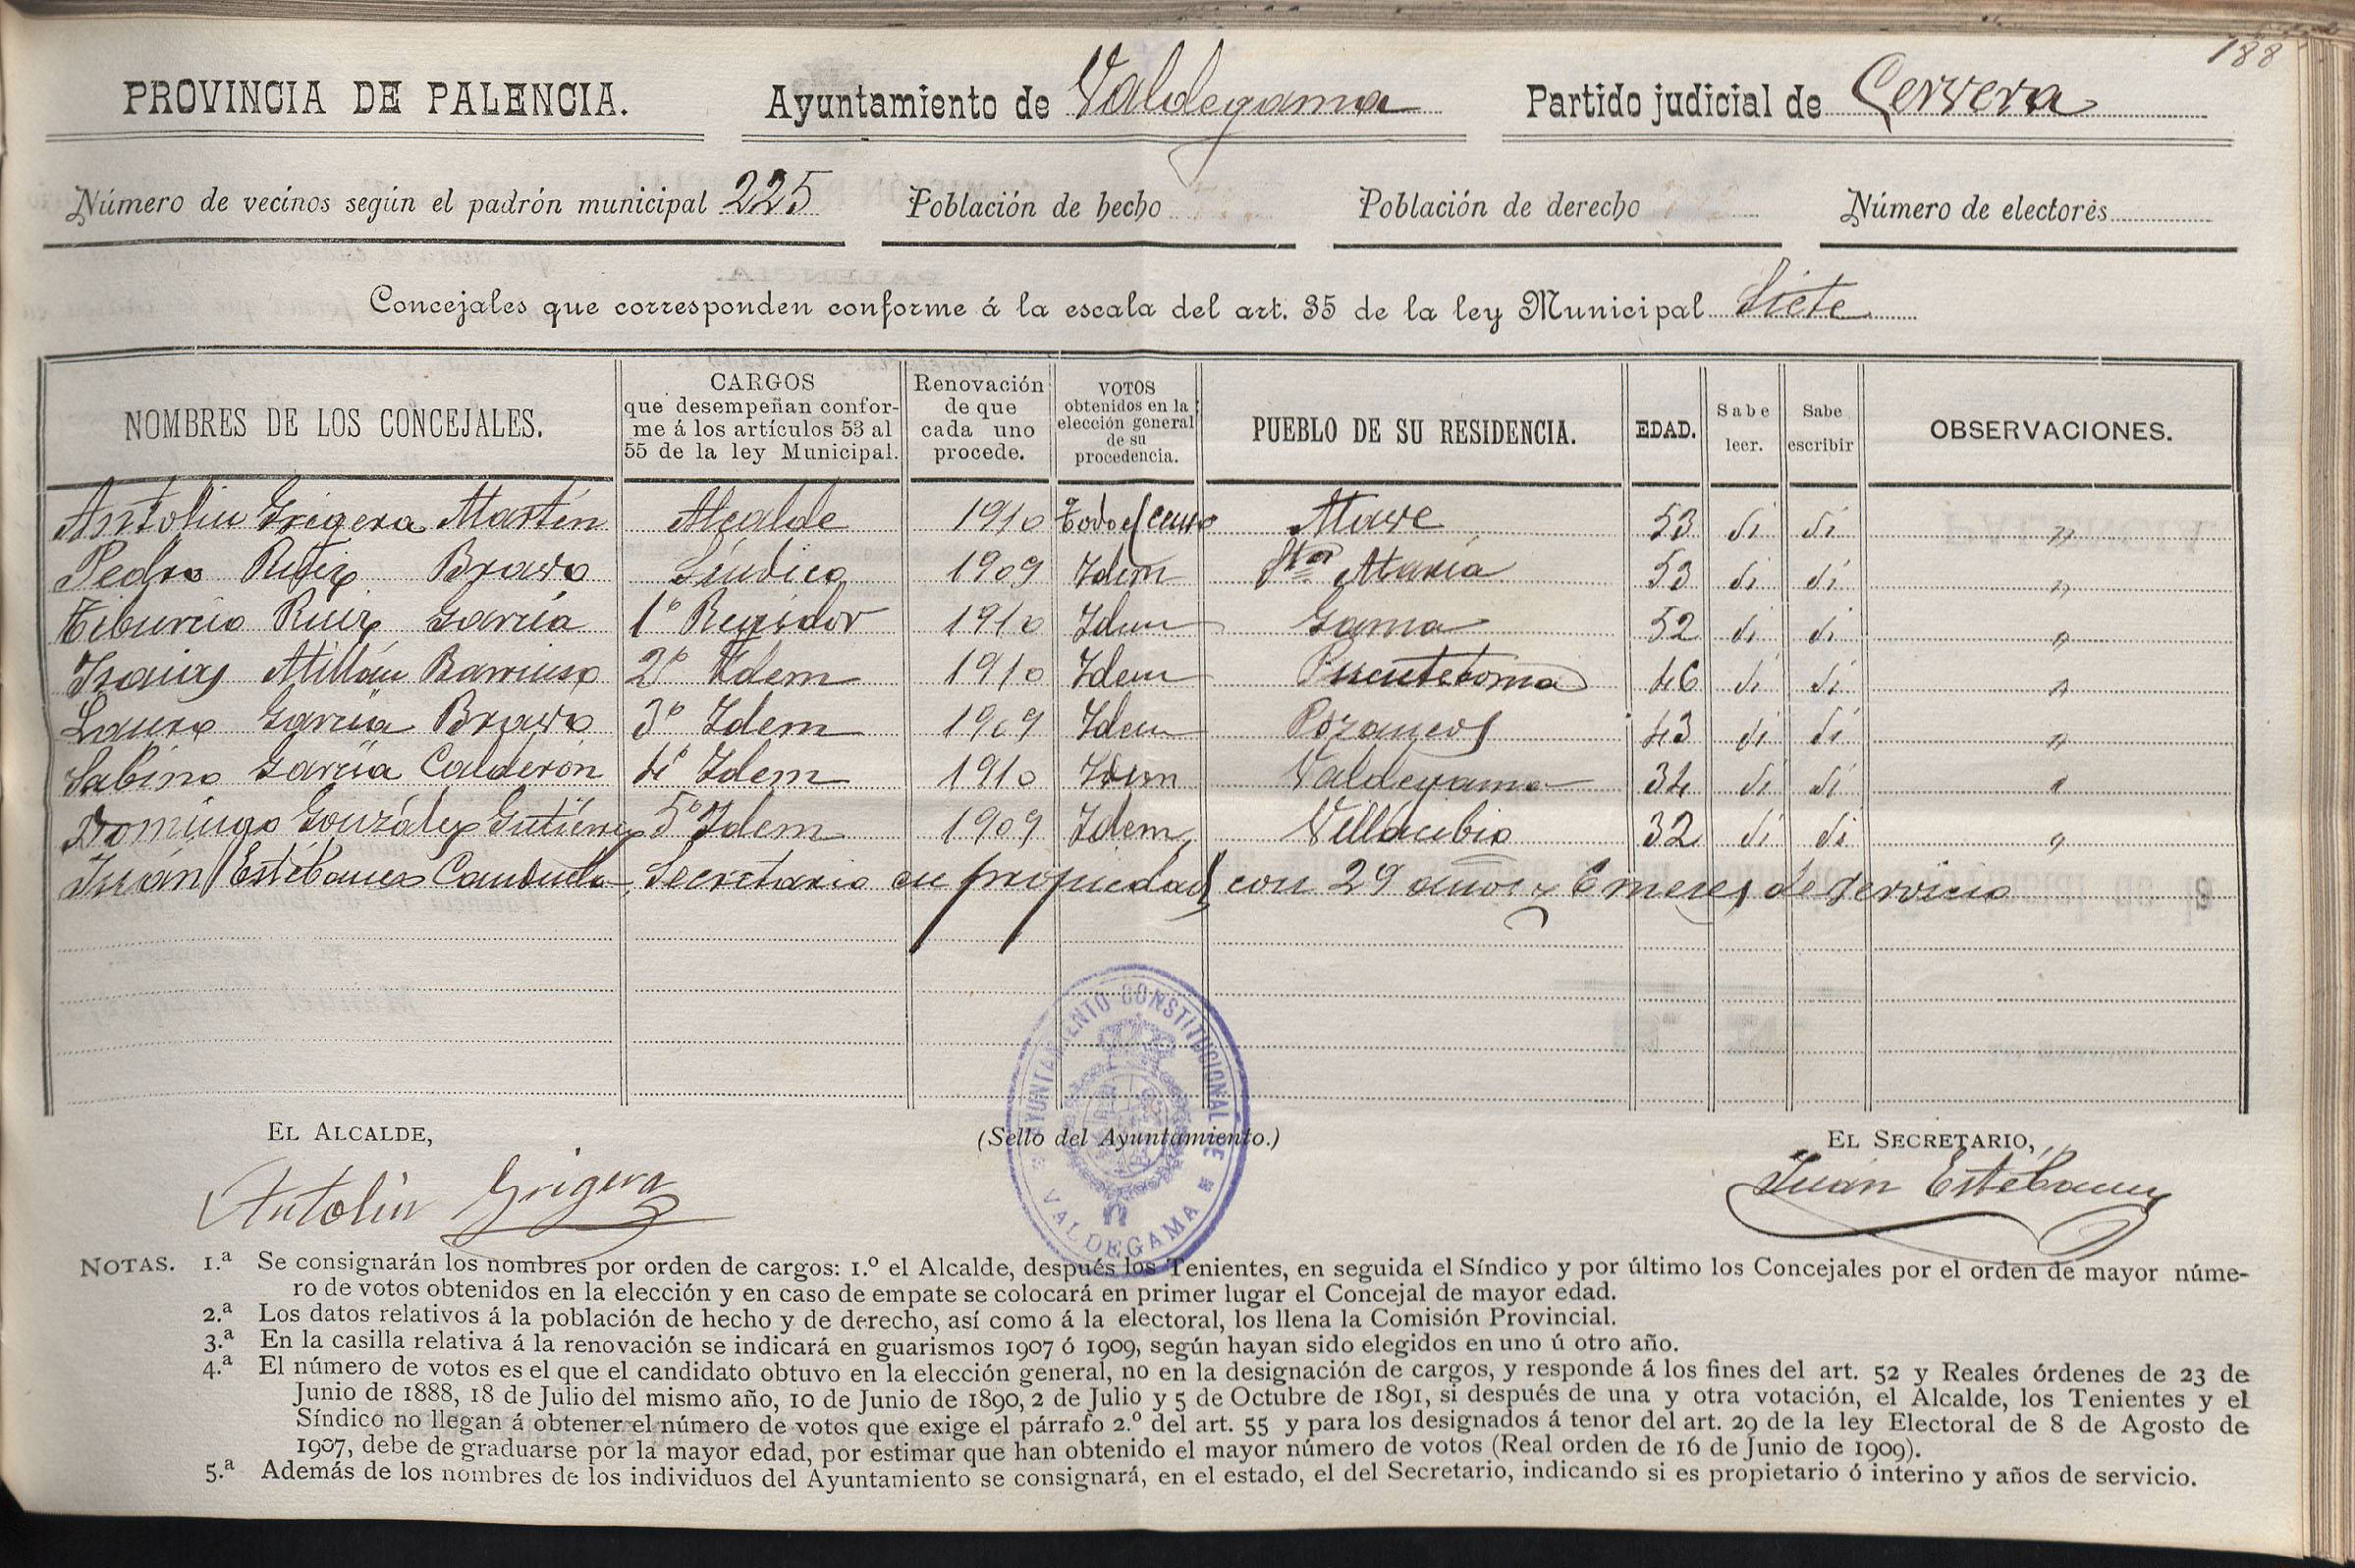 188
PROVINCIA DE PALENCIA. Ayuntamiento de Valdegama Partido judicial de Cervera
Número de vecinos según el padrón municipal 225 Población de hecho Población de derecho Número de electores
Concejales que corresponden conforme á la escala del art. 35 de la ley Municipal Siete
NOMBRES DE LOS CONCEJALES.
CARGOS
que desempeñan confor-
me á los artículos 53 al
55 de la ley Municipal.
Renovación
de que
cada uno
procede.
VOTOS
obtenidos en la
elección general
de su
procedencia.
PUEBLO DE SU RESIDENCIA.
EDAD.
Sabe
leer.
Sabe
escribir
OBSERVACIONES.
Antolin Grigera Martín Alcalde 1910 Todo el censo Mave 53 Si Si "
Pedro Ruiz Bravo Síndico 1909 Idem Sta María 53 Si Si "
Tiburcio Ruiz García 1º Regidor 1910 Idem Gama 52 Si Si "
Isaias Millán Barriuso 2º Idem 1910 Idem Puentetoma 46 Si Si "
Lauro García Bravo 3º Idem 1909 Idem Pozancos 43 Si Si "
Sabino García Calderón 4º Idem 1910 Idem Valdegama 34 Si Si "
Domingo González Gutiérrez 5º Idem 1909 Idem Villacibio 32 Si Si "
Juán Estébanez Canduela Secretario en propiedad con 29 años y 6 meses de servicio
AYUNTAMIENTO CONSTITUCIONAL DE
VALDEGAMA
EL ALCALDE, (Sello del Ayuntamiento.) EL SECRETARIO,
Antolin Grigera Juán Estébanez
NOTAS. 1.ª Se consignarán los nombres por orden de cargos: 1.º el Alcalde, después los Tenientes, en seguida el Síndico y por último los Concejales por el orden de mayor núme-
ro de votos obtenidos en la elección y en caso de empate se colocará en primer lugar el Concejal de mayor edad.
2.ª Los datos relativos á la población de hecho y de derecho, así como á la electoral, los llena la Comisión Provincial.
3.ª En la casilla relativa á la renovación se indicará en guarismos 1907 ó 1909, según hayan sido elegidos en uno ú otro año.
4.ª El número de votos es el que el candidato obtuvo en la elección general, no en la designación de cargos, y responde á los fines del art. 52 y Reales órdenes de 23 de
Junio de 1888, 18 de Julio del mismo año, 10 de Junio de 1890, 2 de Julio y 5 de Octubre de 1891, si después de una y otra votación, el Alcalde, los Tenientes y el
Síndico no llegan á obtener el número de votos que exige el párrafo 2.º del art. 55 y para los designados á tenor del art. 29 de la ley Electoral de 8 de Agosto de
1907, debe de graduarse por la mayor edad, por estimar que han obtenido el mayor número de votos (Real orden de 16 de Junio de 1909).
5.ª Además de los nombres de los individuos del Ayuntamiento se consignará, en el estado, el del Secretario, indicando si es propietario ó interino y años de servicio.